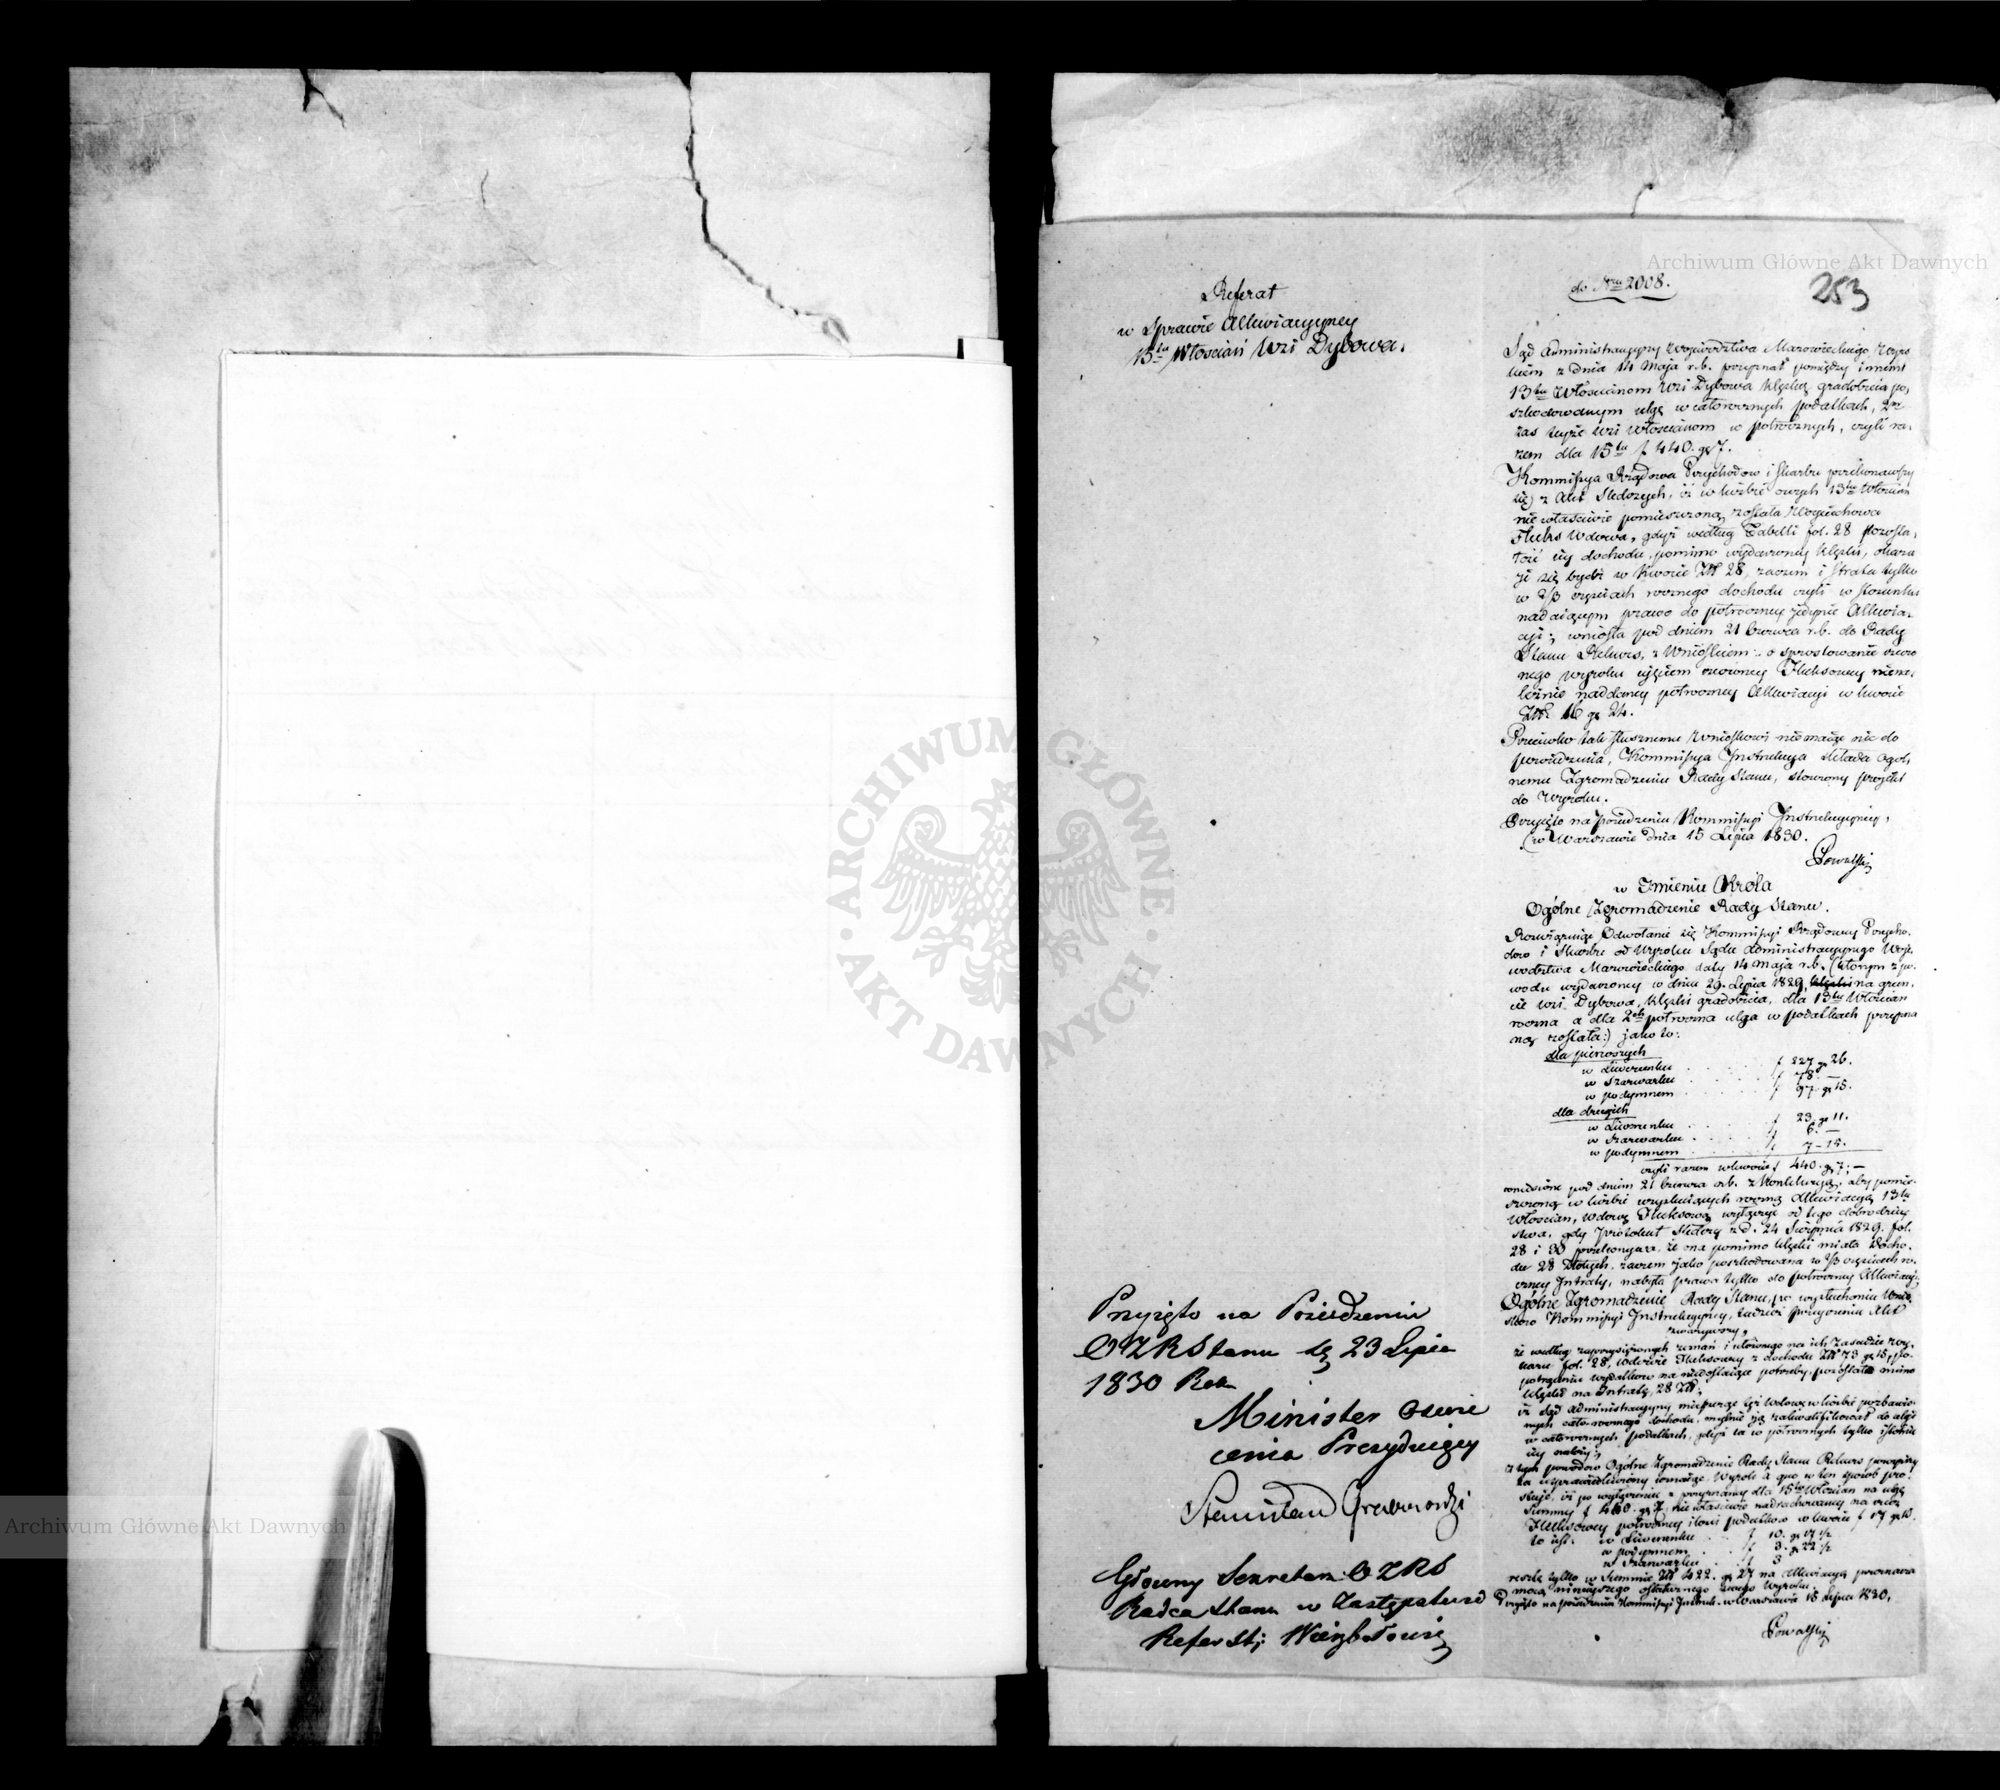 do Nru 2008.
253
Referat
w Sprawie Allewiacyyney
15tu Włościan Wsi Dybowa.
Sąd Administracyyny Województwa Mazowieckiego Wyro
kiem z dnia 14 Maja r.b. przyznał pomiędzy innemi
13tu Włościanom Wsi Dybowa klęską gradobicia po,
szkodowanym ulgę w całorocznych podatkach, 2m
zaś teyże wsi Włościanom w półrocznych, czyli ra,
zem dla 15tu f 440. gr 7.
Kommissya Rządowa Przychodow i Skarbu przekonawszy
się z Akt Śledczych, iż w liczbie owych 13tu Włościan
niewłaściwie pomieszczoną została Woyciechowa
Fluks Wdowa, gdyż według Tabelli fol. 28 pozosta,
łość iey dochodu, pomimo wydarzoney klęski, okazu
je się bydź w kwocie Złł 28, zaczem i strata tylko
w 2/3 częściach rocznego dochodu czyli w stosunku
nadaiącym prawo do półroczney jedynie Allewia,
cyi; wniosła pod dniem 21 Czerwca r.b. do Rady
Stanu Rekurs, z Wnioskiem: o sprostowanie rzeczo
nego wyroku ujęciem rzeczoney Fluksowey niena,
leżnie naddaney półroczney Allewiacyi w kwocie
Złł 16 gr 24.
Przeciwko tak słusznemu Wnioskowi niemając nic do
powiedzenia, Kommissya Instrukcyyna składa Ogól,
nemu Zgromadzeniu Rady Stanu, stosowny projekt
do Wyroku.
Przyjęto na posiedzeniu Kommissyi Instrukcyyney,
w Warszawie dnia 15 Lipca 1830.
w Imieniu Króla
Ogólne Zgromadzenie Rady Stanu.
Rozwiązując Odwołanie się Kommissyi Rządowey Przycho,
dow i Skarbu od Wyroku Sądu Administracyynego Woje,
wodztwa Mazowieckiego daty 14 Maja r.b. (którym z po,
wodu wydarzoney w dniu 29. Lipca 1829, na grun,
cie wsi Dybowa, klęski gradobicia, dla 13tu Włościan
roczna a dla 2ch półroczna ulga w podatkach przyzna
ną została:) jako to:
dla pierwszych
w Liwerunku f 227 gr 26.
w Szarwarku f 78. —
w podymnem f 97 gr 15.
dla drugich
w Liwerunku f 23 gr 11.
w Szarwarku f 6. —
w podymnem f 7 – 15.
czyli razem w kwocie f 440. gr 7; —
wniesione pod dniem 21 Czerwca r.b. z Konkluzyą, aby pomie,
szczoną w liczbie uzyskuiących roczną Allewiacyą 13tu
Włościan, Wdowę Fluksową wyłączyć od tego dobrodziey
stwa, gdy Protokuł Śledczy z d. 24 Sierpnia 1829. fol.
28 i 30 przekonywa, że ona pomimo klęski miała Docho,
du 28 Złotych, zaczem jako poszkodowana w 2/3 częściach ro,
czney Intraty, nabyła prawa tylko do półroczney Allewiacyi,
Ogólne Zgromadzenie Rady Stanu, po wysłuchaniu Wnio,
sków Kommissyi Instrukcyyney, tudzież przeyrzeniu Akt
zważywszy,
że według zaprzysiężonych zeznań i ułożonego na ich zasadzie wy,
kazu fol. 28, Wdowie Fluksowey z dochodu Złł 73 gr 15, po
potrąceniu wydatków na niedostaiące potrzeby, pozostało mimo
klęski na Intratę, 28 Złł;
iż Sąd Administracyyny mieszcząc tęż Wdowę w liczbie pozbawio,
nych całorocznego dochodu, mylnie ją zakwalifikował do ulgi
w całorocznych podatkach, gdyż ta w półrocznych tylko istotnie
iey należy;
z tych powodow Ogólne Zgromadzenie Rady Stanu Rekurs powyższy
za usprawiedliwiony uznając, Wyrok a quo w ten sposób pro,
stuje, iż po wyłączeniu z przyznaney dla 15tu Włościan na ulgę
Summy f 440. gr 7, niewłaściwie nadrachowaney na rzecz
Fluksowey półroczney ilości podatków w kwocie f 17 gr 10.
to iest: w Liwerunku f 10. gr 17 1/2
w podymnem f 3. gr 22 1/2
w Szarwarku f 3
resztę tylko w Summie Złł 422. gr 27 na Allewiacyą przeznacza
mocą ninieyszego ostatecznego swego Wyroku.
Przyjęto na posiedzeniu Kommissyi Instruk. w Warszawie 15 Lipca 1830.
Przyjęto na Posiedzeniu
OZRStanu dn 23 Lipca
1830 Roku
Minister Oświe
cenia Prezyduiący
Stanisław Grabowski
Główny Sekretarz OZRS
Radca Stanu w Zastępstwie
Refer St;
Archiwum Główne Akt Dawnych
Archiwum Główne Akt Dawnych
ARCHIWUM GŁÓWNE
AKT DAWNYCH